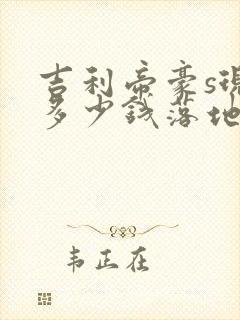 吉利帝豪s现
多少钱落地
韦正在